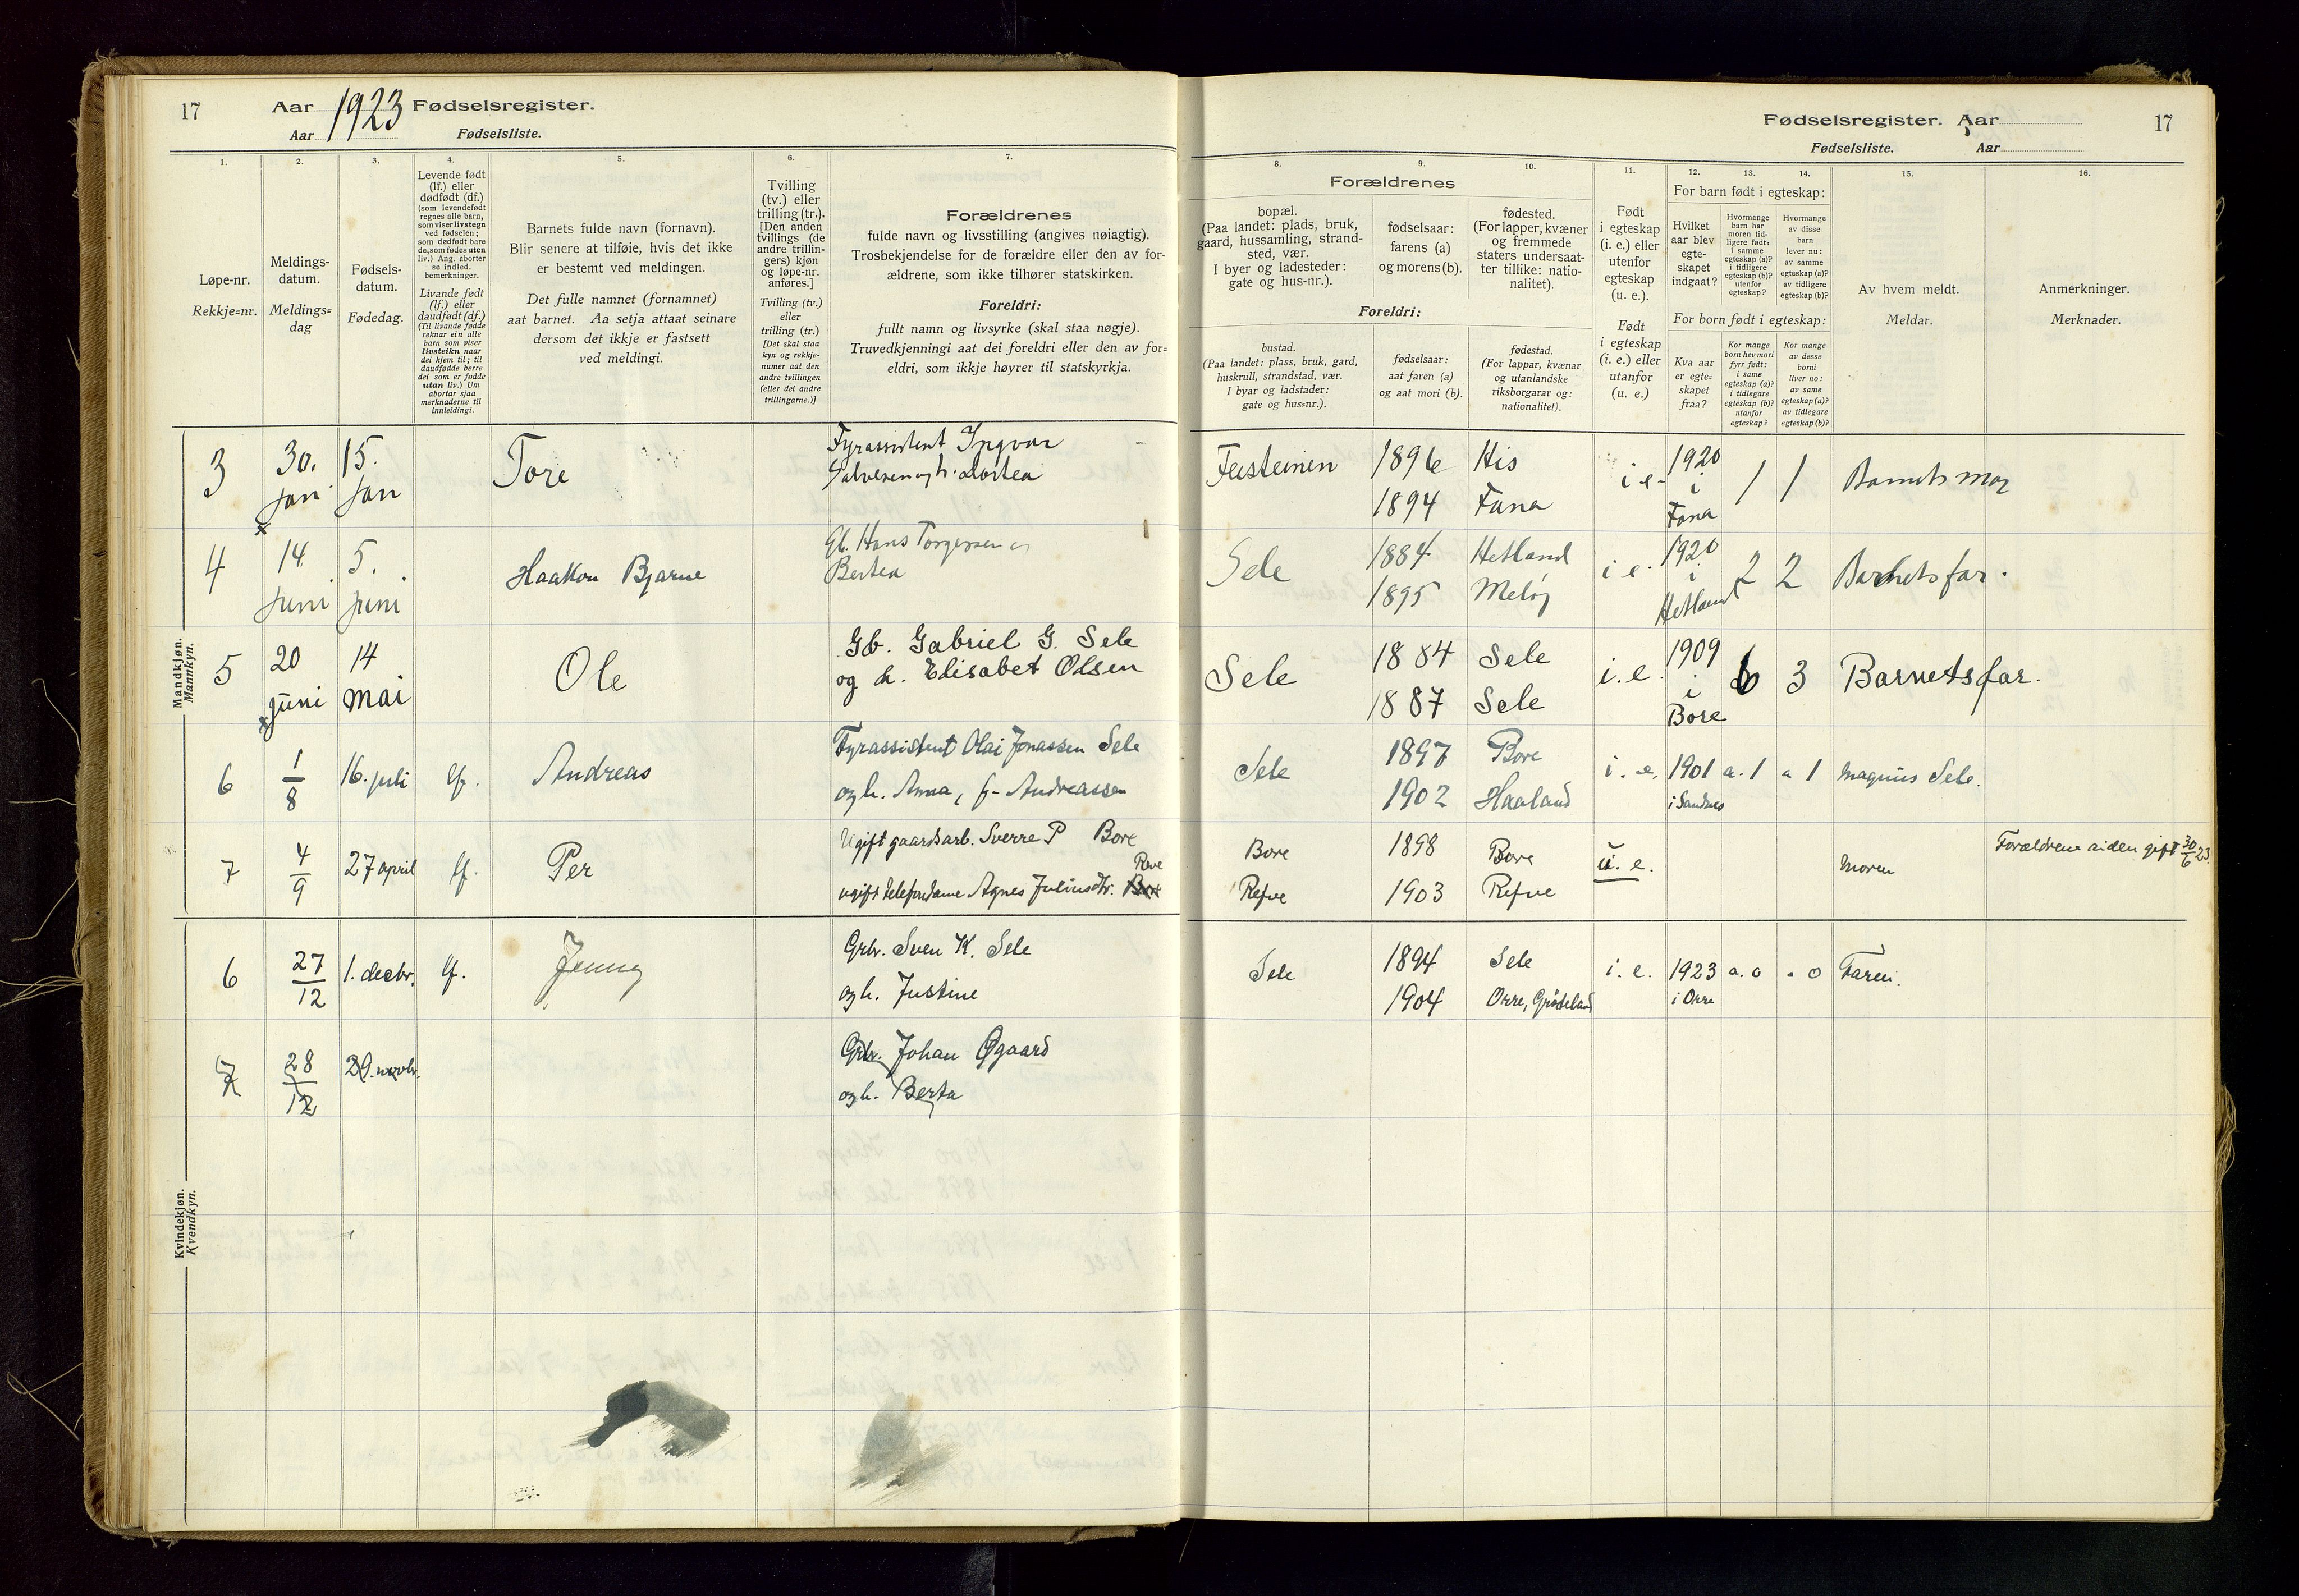 17 Aar 1923 Fødselsregister.
Aar Fødselsliste.
1. 2. 3. 4. 5. 6. 7.
Løpe-nr.
Rekkje=nr.
Meldings-
datum.
Meldings=
dag
Fødsels-
datum.
Fødedag.
Levende født
(lf.) eller
dødfødt (df.)
(som levendefødt
regnes alle barn,
som viser livstegn
ved fødselen;
som dødfødt bare
de, som fødes uten
liv.) Ang. aborter
se indled.
bemerkninger.
Livande født
(lf.) eller
daudfødt (df.)
(Til livande fødde
reknar ein alle
barn som viser
livsteikn naar
dei kjem til; til
daudfødde berre
dei som er fødde
utan liv.) Um
abortar sjaa
merknaderne til
innleidingi.
Barnets fulde navn (fornavn).
Blir senere at tilføie, hvis det ikke
er bestemt ved meldingen.
Det fulle namnet (fornamnet)
aat barnet. Aa setja attaat seinare
dersom det ikkje er fastsett
ved meldingi.
Tvilling
(tv.) eller
trilling (tr.).
[Den anden
tvillings (de
andre trillin-
gers) kjøn
og løpe-nr.
anføres.]
Tvilling (tv.)
eller
trilling (tr.)
[Det skal staa
kyn og rekkje-
numer aat den
andre tvillingen
(eller dei andre
trillingarne.)]
Forældrenes
fulde navn og livsstilling (angives nøiagtig).
Trosbekjendelse for de forældre eller den av for-
ældrene, som ikke tilhører statskirken.
Foreldri:
fullt namn og livsyrke (skal staa nøgje).
Truvedkjenningi aat dei foreldri eller den av for=
eldri, som ikkje høyrer til statskyrkja.
Mandkjøn.
Mannkyn.
3 30. jan 15. jan Tore
Fyrassistent Ingvar
Salvesen og h. Dortea
4 14. juni 5. juni Haakon Bjarne
Gb. Hans Torgersen
Bertea
5 20 juni 14 mai Ole
Gb. Gabriel G. Sele
og h. Elisabet Olsen
6 1/8 16. juli lf. Andreas
Fyrassistent Olai Jonassen Sele
og h. Anna, f. Andreassen
7 4/9 27 april lf. Per
Ugift gaardsarb. Sverre P Bore
Reve
ugift telefondame Agnes Juliusdtr. Bore
Kvindekjøn.
Kvendkyn.
6 27/12 1. decbr. lf. Jenny
Grbr. Sven K. Sele
og h. Justine
7 28/12 29. novbr.
Grbr. Johan Øgaard
og h. Berta
Fødselsregister. Aar 17
Fødselsliste. Aar
8. 9. 10. 11. 12. 13. 14. 15. 16.
Forældrenes
bopæl.
(Paa landet: plads, bruk,
gaard, hussamling, strand-
sted, vær.
I byer og ladesteder:
gate og hus-nr.).
fødselsaar:
farens (a)
og morens (b).
fødested.
(For lapper, kvæner
og fremmede
staters undersaat-
ter tillike: natio-
nalitet).
Foreldri:
bustad.
(Paa landet: plass, bruk, gard,
huskrull, strandstad, vær.
I byar og ladstader:
gate og hus=nr.).
fødselsaar:
aat faren (a)
og aat mori (b).
fødestad.
(For lappar, kvænar
og utanlandske
riksborgarar og:
nationalitet).
Født
i egteskap
(i. e.) eller
utenfor
egteskap
(u. e.).
Født
i egteskap
(i. e.) eller
utanfor
(u. e.)
For barn født i egteskap:
Hvilket
aar blev
egte-
skapet
indgaat?
Hvormange
barn har
moren tid-
ligere født:
i samme
egteskap (a)?
i tidligere
egteskap (b)?
utenfor
egteskap?
Hvormange
av disse
barn
lever nu:
av samme
egteskap (a)?
av tidligere
egteskap (b)?
For born født i egteskap:
Kva aar
er egte=
skapet
fraa?
Kor mange
born hev mori
fyrr født:
i same
egteskap (a)?
i tidlegare
egteskap (b)?
utanfor
egteskap?
Kor mange
av desse
borni
liver no:
av same
egteskap (a)?
av tidlegare
egteskap (b)?
Av hvem meldt.
Meldar.
Anmerkninger.
Merknader.
Feisteinen 1896 His i e. 1920 i Fana 1 1 Barnets mor
1894 Fana
Sele 1884 Hetland i e. 1920 i Hetland 2 2 Barnets far.
1895 Meløy
Sele 1884 Sele i. e. 1909 i Bore 6 3 Barnets far.
1887 Sele
Sele 1897 Bore i. e. 1901 a. 1 a 1 Magnus Sele.
1902 Haaland i Sandnes
Bore 1898 Bore u. e. Moren Forældrene siden gift 30/6 23.
Refve 1903 Refve
Sele 1894 Sele i. e. 1923 a. o . o Faren.
1904 Orre, Grødeland i Orre